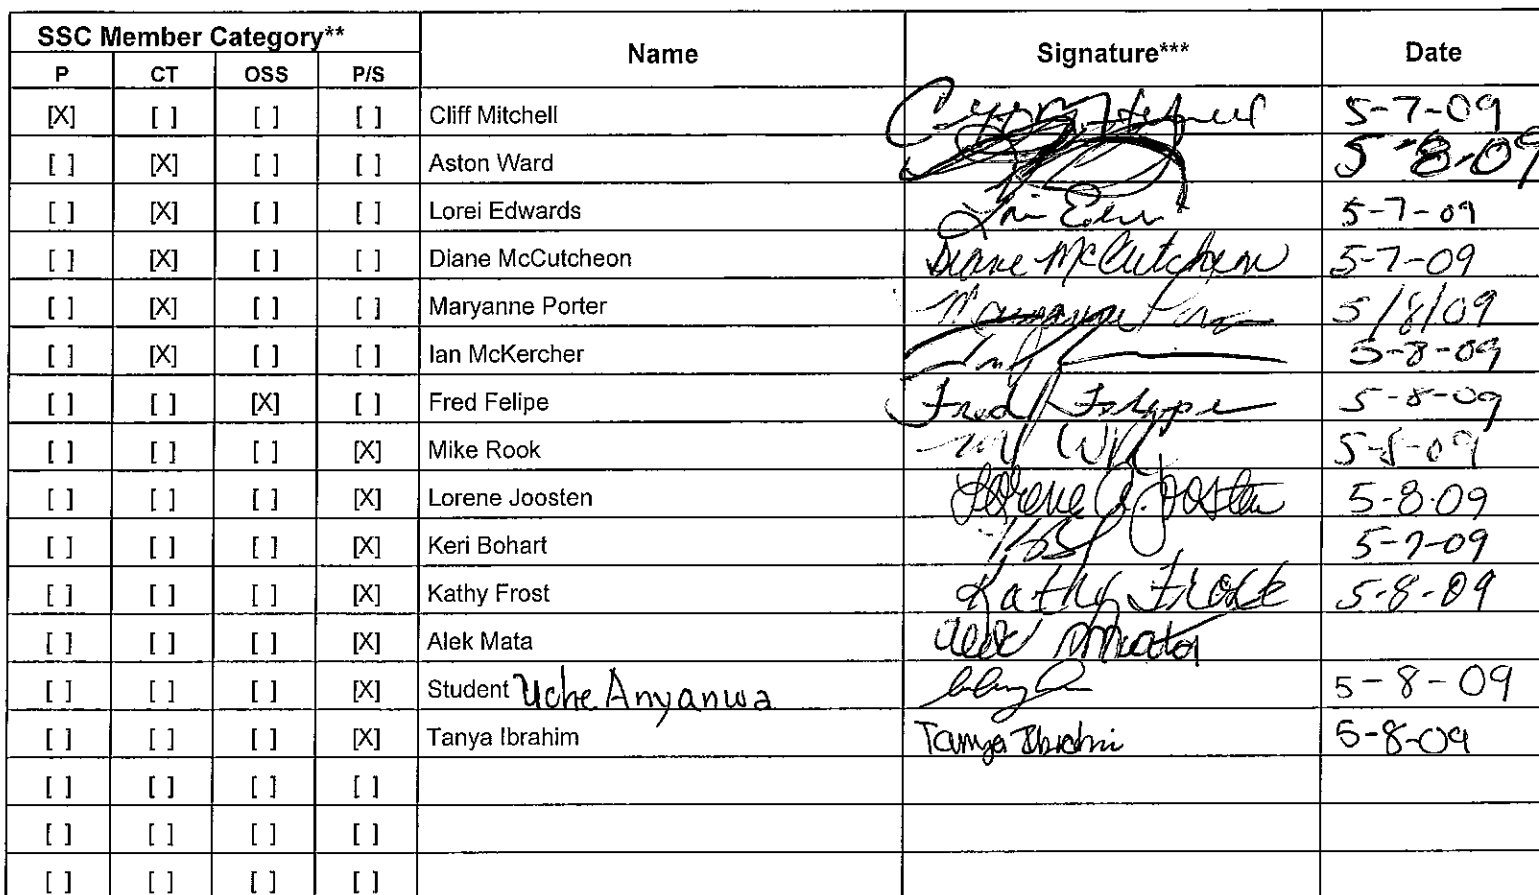 SSC Member Category** Name Signature*** Date
P CT OSS P/S
[X] [ ] [ ] [ ] Cliff Mitchell 5-7-09
[ ] [X] [ ] [ ] Aston Ward 5-8-09
[ ] [X] [ ] [ ] Lorei Edwards 5-7-09
[ ] [X] [ ] [ ] Diane McCutcheon Diane McCutcheon 5-7-09
[ ] [X] [ ] [ ] Maryanne Porter 5/8/09
[ ] [X] [ ] [ ] Ian McKercher 5-8-09
[ ] [ ] [X] [ ] Fred Felipe Fred Felipe 5-8-09
[ ] [ ] [ ] [X] Mike Rook 5-8-09
[ ] [ ] [ ] [X] Lorene Joosten Lorene A. Joosten 5-8-09
[ ] [ ] [ ] [X] Keri Bohart 5-7-09
[ ] [ ] [ ] [X] Kathy Frost Kathy Frost 5-8-09
[ ] [ ] [ ] [X] Alek Mata
[ ] [ ] [ ] [X] Student Uche Anyanwa 5-8-09
[ ] [ ] [ ] [X] Tanya Ibrahim Tanya Ibrahim 5-8-09
[ ] [ ] [ ] [ ]
[ ] [ ] [ ] [ ]
[ ] [ ] [ ] [ ]